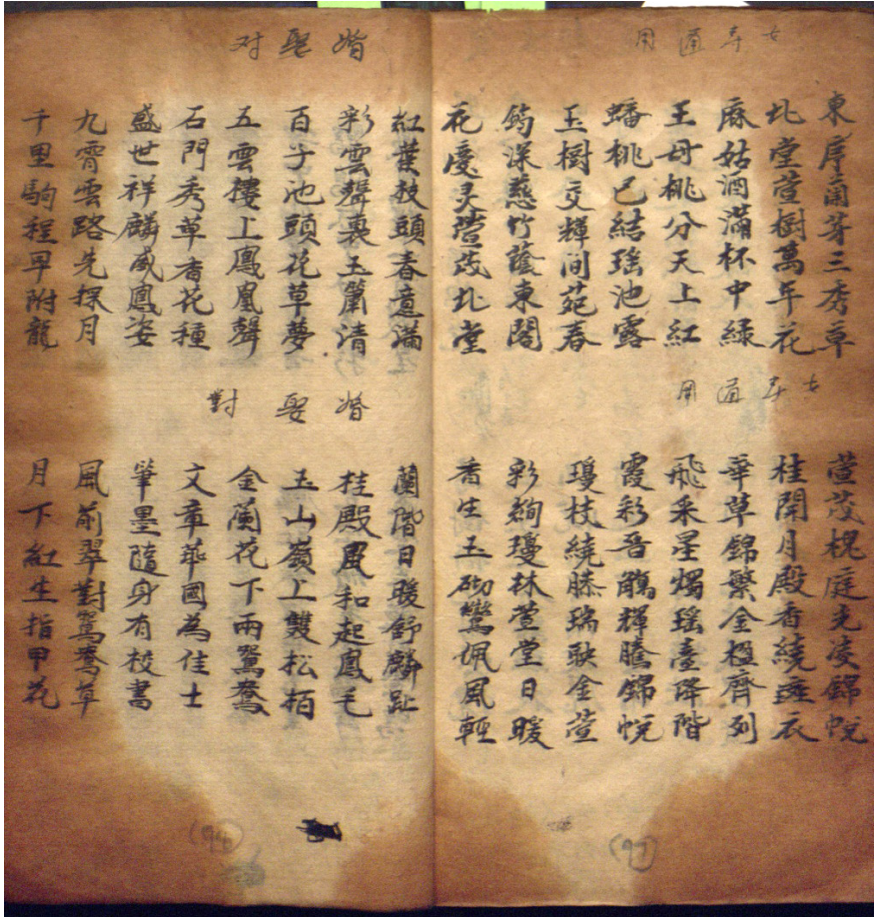 女 壽 通 用
東序蘭芽三秀草
北堂萱樹萬年花
麻姑酒滿杯中綠
王母桃分天上紅
蟠桃已結瑤池露
玉樹交輝间苑春
筠深慈竹蔭東閣
花慶灵萱茂北堂
女 壽 通 用
萱茂槐庭光凌錦帨
桂開月殿香繞斑衣
華草錦繁金楹齊列
飛采星燭瑤臺降階
霞彩晋觴輝騰錦帨
瓊枝繞膝瑞映金萱
彩絢瓊林萱堂日暖
香生玉砌鸞佩風輕
婚 娶 对
紅葉枝頭春意滿
彩雲聲裏玉簫清
百子池頭花草夢
五雲樓上鳳凰聲
石門秀草香花種
盛世祥麟威鳳姿
九霄雲路先探月
千里駒程早附龍
婚 娶 對
蘭階日暖舒麟趾
桂殿風和起鳳毛
玉山嶺上雙松栢
金蘭花下兩鴛鴦
文章華國為佳士
筆墨隨身有校書
風前翠對鴛鴦草
月下紅生指甲花
(94)